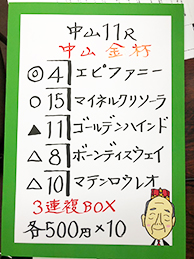 中山11R
中山金杯
◎4 エピファニー
○15 マイネルクリソーラ
▲11 ゴールデンハインド
△8 ボーンディスウェイ
△10 マテンロウレオ
3連複BOX
各500円×10